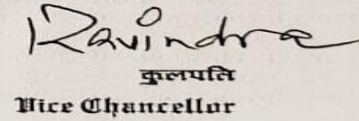 Ravindra
कुलपति
Vice Chancellor